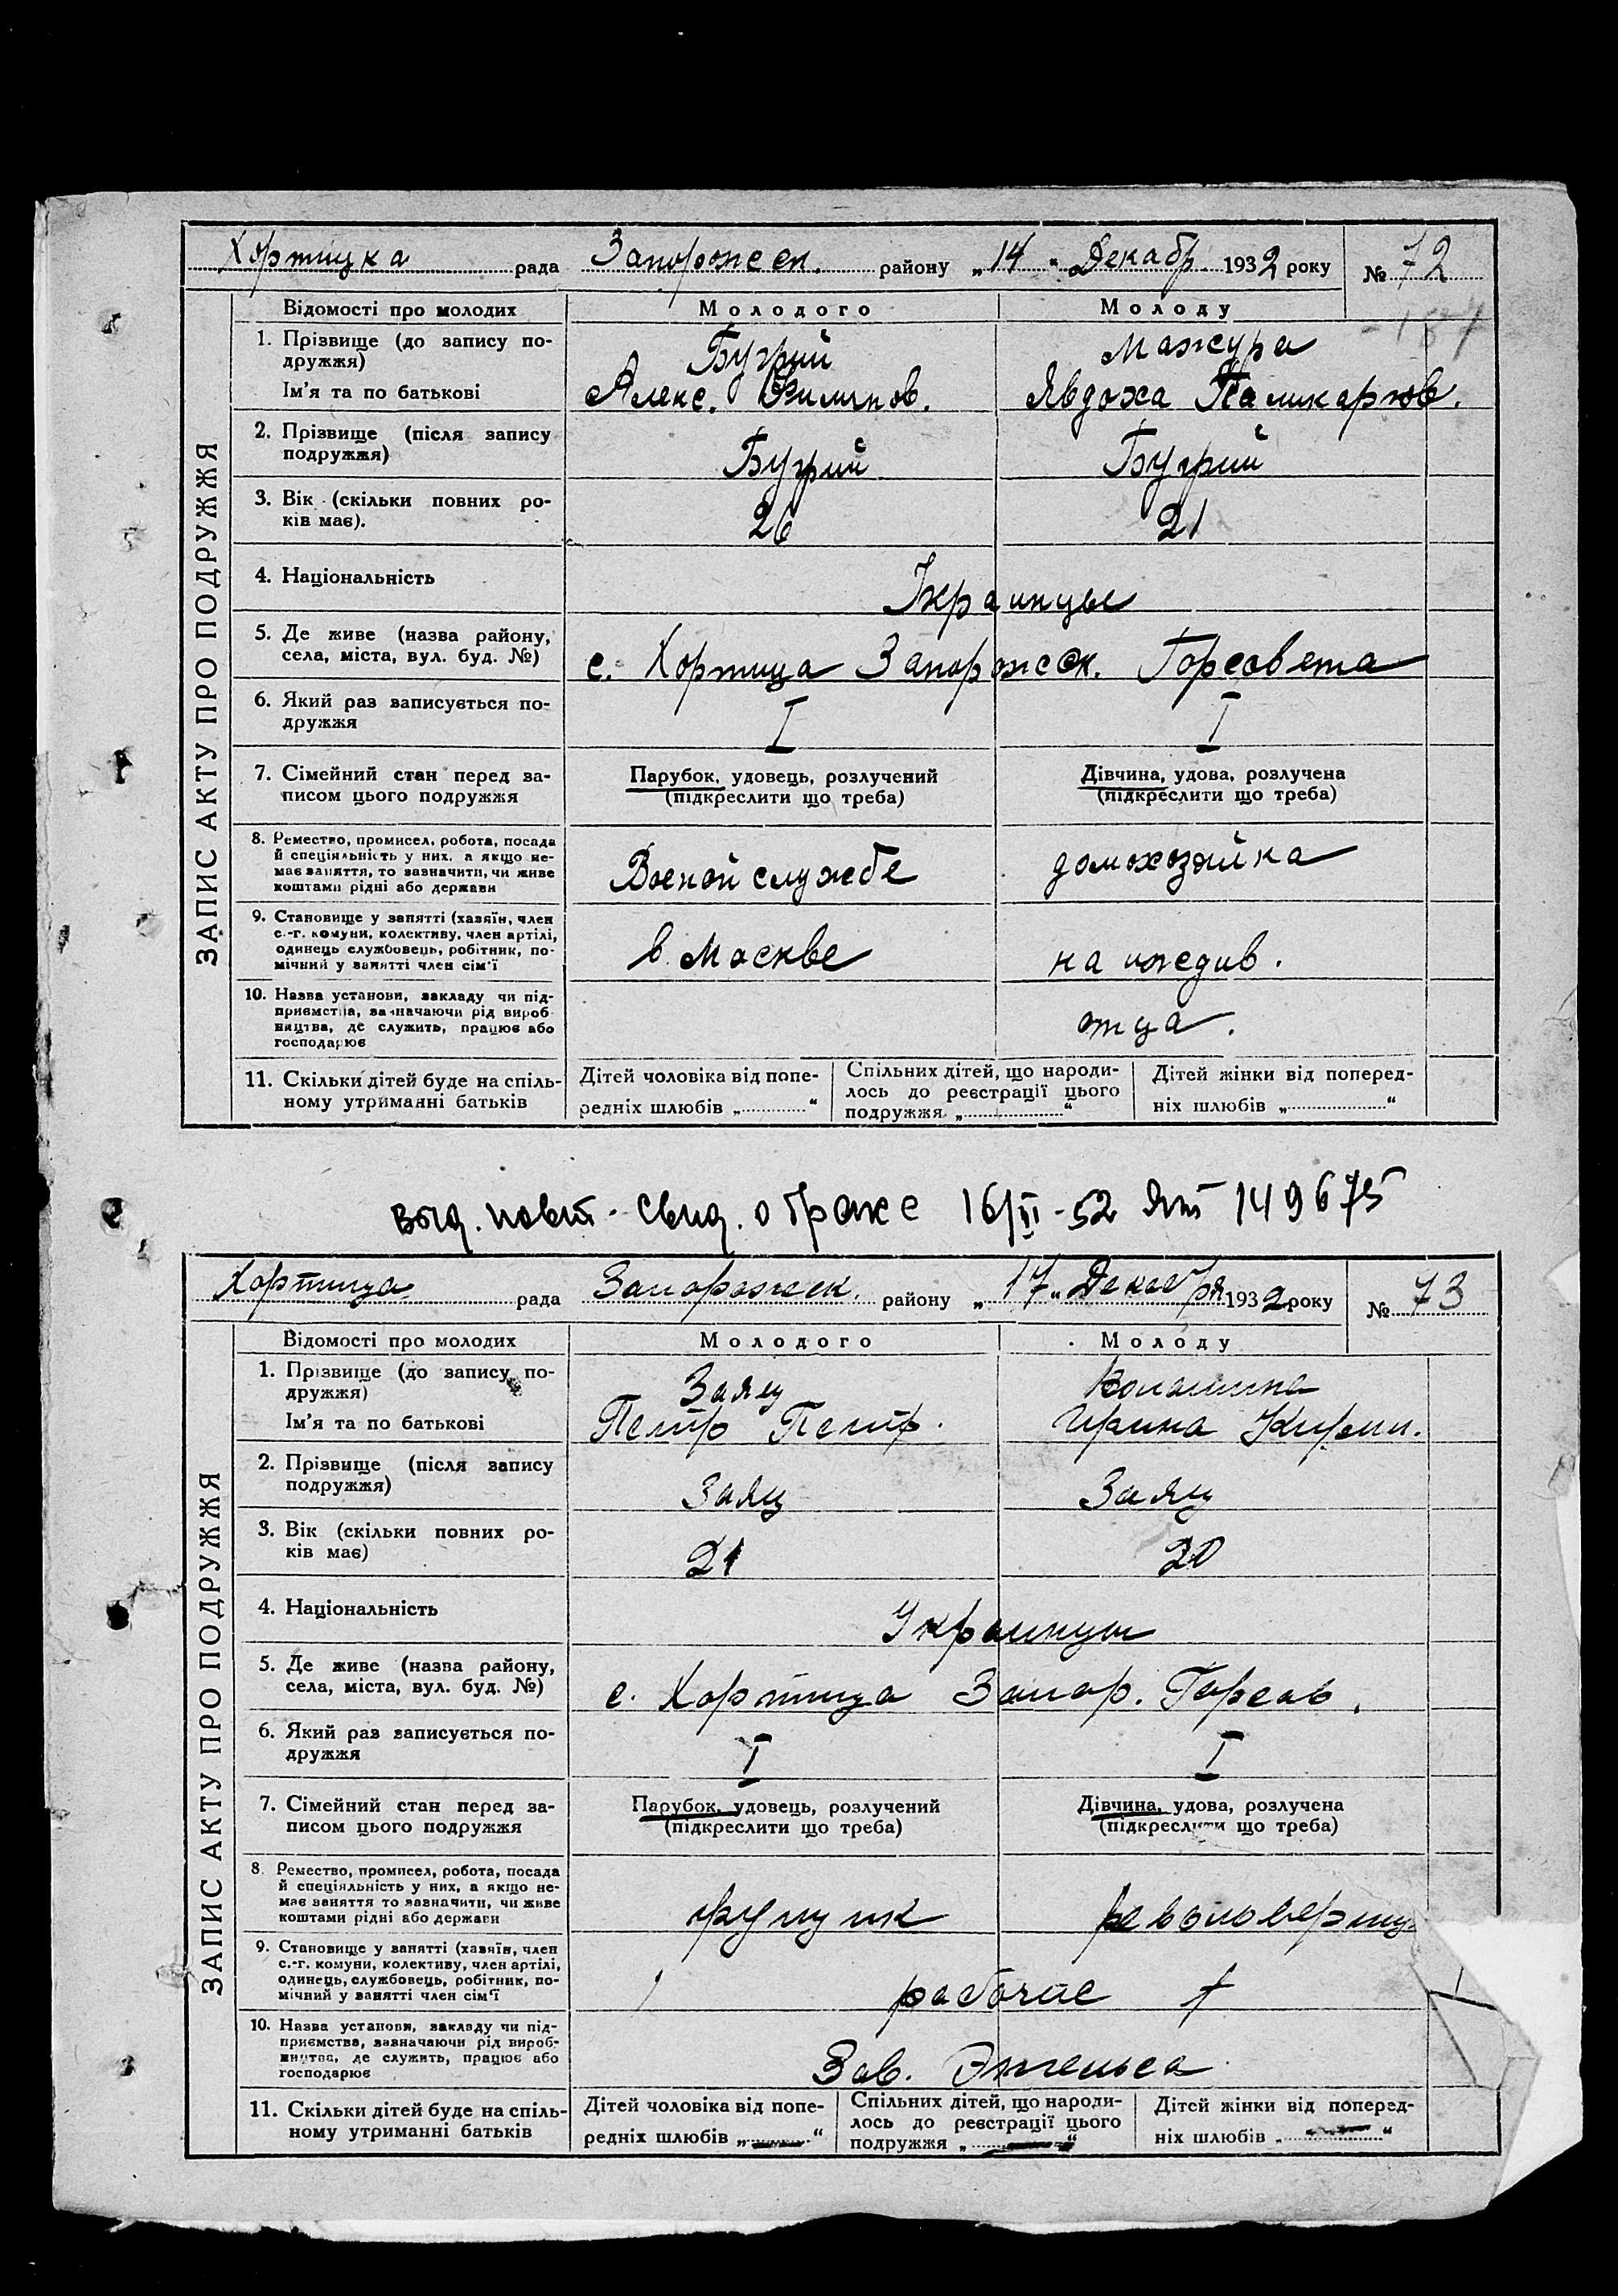 Хортицка рада Запорожск. району „14“ Декабр 1932 року № 72
Відомості про молодих Молодого Молоду
1. Прізвище (до запису по-
дружжя) Бугрий Мажура
Ім'я та по батькові Алекс. Филипов. Явдоха Паликарпов.
2. Прізвище (після запису
подружжя) Бугрий Бугрий
3. Вік (скільки повних ро-
ків має). 26 21
4. Національність Украинцы
5. Де живе (назва району,
села, міста, вул. буд. №) с. Хортица Запорожск. Горсовета
6. Який раз записується по-
дружжя I I
7. Сімейний стан перед за-
писом цього подружжя
Парубок, удовець, розлучений
(підкреслити що треба)
Дівчина, удова, розлучена
(підкреслити що треба)
8. Ремество, промисел, робота, посада
й спеціяльність у них, а якщо не-
має заняття, то зазначити, чи живе
коштами рідні або держави
Военой службе домохозяйка
9. Становище у занятті (хазяїн, член
с.-г. комуни, колективу, член артілі,
одинець службовець, робітник, по-
мічний у занятті член сім'ї
в Москве на иждив.
10. Назва установи, закладу чи під-
приємства, зазначаючи рід вироб-
ництва, де служить, працює або
господарює
отца.
11. Скільки дітей буде на спіль-
ному утриманні батьків
Дітей чоловіка від попе-
редніх шлюбів „ “
Спільних дітей, що народи-
лось до реєстрації цього
подружжя „ “
Дітей жінки від поперед-
ніх шлюбів „ “
ЗАПИС АКТУ ПРО ПОДРУЖЖЯ
выд. повт. свид. о браке 16/II-52 149675
Хортица рада Запорожск. району „17„ Декабря 1932 року № 73
Відомості про молодих Молодого Молоду
1. Прізвище (до запису по-
дружжя) Заяц
Ім'я та по батькові Петр Петр. Ирина
2. Прізвище (після запису
подружжя) Заяц Заяц
3. Вік (скільки повних ро-
ків має) 21 20
4. Національність Украинцы
5. Де живе (назва району,
села, міста, вул. буд. №) с. Хортица Запор. Горсов.
6. Який раз записується по-
дружжя I I
7. Сімейний стан перед за-
писом цього подружжя
Парубок, удовець, розлучений
(підкреслити що треба)
Дівчина, удова, розлучена
(підкреслити що треба)
8. Ремество, промисел, робота, посада
й спеціяльність у них, а якщо не-
має заняття то зазначити, чи живе
коштами рідні або держави
9. Становище у занятті (хазяїн, член
с.-г. комуни, колективу, член артілі,
одинець, службовець, робітник, по-
мічний у занятті член сім'ї
рабочие
10. Назва установи, закладу чи під-
приємства, зазначаючи рід вироб-
ництва, де служить, працює або
господарює
Зав. Энгельса
11. Скільки дітей буде на спіль-
ному утриманні батьків
Дітей чоловіка від попе-
редніх шлюбів „ “
Спільних дітей, що народи-
лось до реєстрації цього
подружжя „ “
Дітей жінки від поперед-
ніх шлюбів „ “
ЗАПИС АКТУ ПРО ПОДРУЖЖЯ